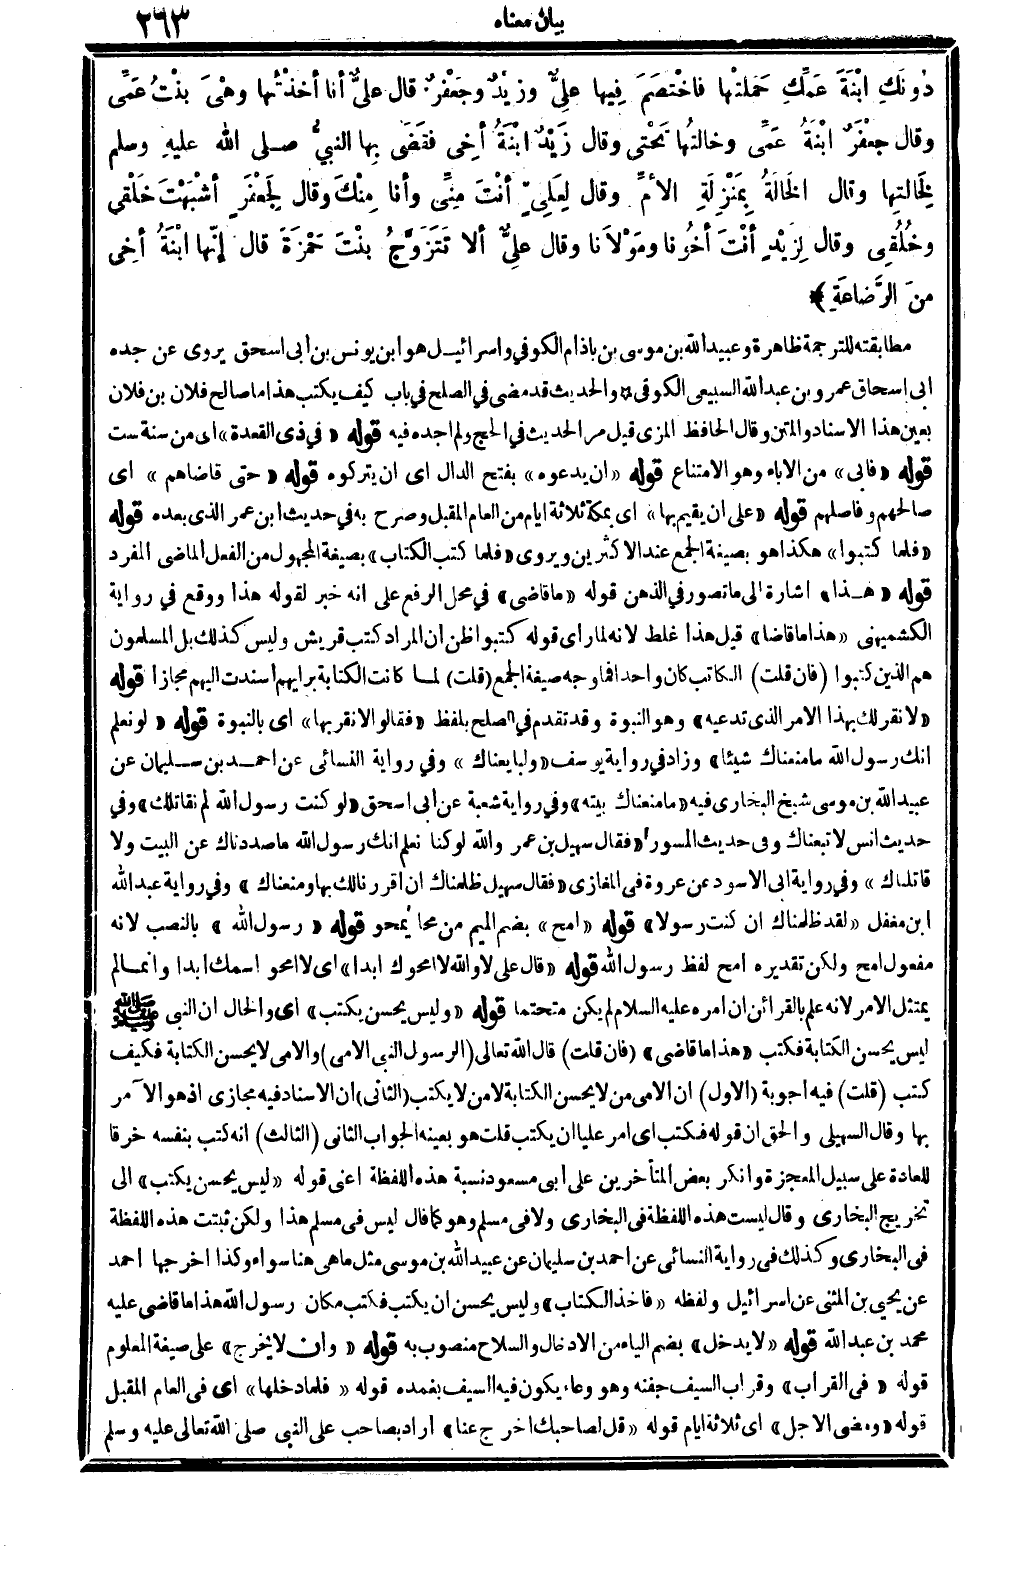 بيان معناه ٢٦٣
دُونَكِ ابْنَةَ عَمِّكِ حَمَلَتْها فاخْتَصَمَ فِيها عَلِيٌّ وزَيْدٌ وجَعْفَرٌ قال عَلِيٌّ أنا أخَذْتُها وهْيَ بِنْتُ عَمِّى
وقال جَعْفَرٌ ابْنَةُ عَمِّى وخالتُها تَحْتِى وقال زَيْدٌ ابْنَةُ أخِى فَقَضَى بِها النبيُّ صلى الله عليهِ وسلم
لِخالَتِها وقال الخَالَةُ بِمَنْزِلَةِ الأُمِّ وقال لِعَلِيٍّ أنْتَ مِنِّى وأنا مِنْكَ وقال لِجَعْفَرٍ أشْبَهْتَ خَلْقِي
وخُلُقِى وقال لِزَيْدٍ أنْتَ أخُونا ومَوْلاَنا وقال عَلِيٌّ ألا تَتَزَوَّجُ بِنْتَ حَمْزَةَ قال إنَّها ابْنَةُ أخِى
مِنَ الرَّضاعَةِ ﴾
مطابقته للترجمة ظاهرة وعبيد الله بن موسى بن باذام الكوفي واسرائيل هو ابن يونس بن أبى اسحق يروى عن جده
ابى اسحاق عمرو بن عبدالله السبيعى الكوفى * والحديث قد مضى في الصلح في باب كيف يكتب هذا ما صالح فلان بن فلان
بعين هذا الاسناد والمتن وقال الحافظ المزى قيل مر الحديث في الحج ولم اجده فيه قوله « في ذى القعدة » اى من سنة ست
قوله « فابى » من الاباء وهو الامتناع قوله « ان يدعوه » بفتح الدال اى ان يتركوه قوله « حتى قاضاهم » اى
صالحهم وفاصلهم قوله « على ان يقيم بها » اى بمكة ثلاثة ايام من العام المقبل وصرح به في حديث ابن عمر الذى بعده قوله
« فلما كتبوا » هكذا هو بصيغة الجمع عند الاكثرين ويروى « فلما كتب الكتاب » بصيغة المجهول من الفعل الماضى المفرد
قوله « هذا » اشارة الى ما تصور في الذهن قوله « ما قاضى » في محل الرفع على انه خبر لقوله هذا ووقع في رواية
الكشميهنى « هذا ما قاضا » قيل هذا غلط لانه لما راى قوله كتبوا ظن ان المراد كتب قريش وليس كذلك بل المسلمون
هم الذين كتبوا ( فان قلت ) الكاتب كان واحدا فما وجه صيغة الجمع ( قلت ) لما كانت الكتابة برايهم اسندت اليهم مجازا قوله
« لا نقر لك بهذا الامر الذى تدعيه » وهو النبوة وقد تقدم في الصلح بلفظ « فقالوا لا نقر بها » اى بالنبوة قوله « لو نعلم
انك رسول الله ما منعناك شيئا » وزاد في رواية يوسف « ولبايعناك » وفي رواية النسائى عن احمد بن سليمان عن
عبيد الله بن موسى شيخ البخارى فيه « ما منعناك بيته » وفي رواية شعبة عن أبى اسحق « لو كنت رسول الله لم نقاتلك » وفي
حديث انس لاتبعناك وفى حديث المسور « فقال سهيل بن عمر والله لو كنا نعلم انك رسول الله ما صددناك عن البيت ولا
قاتلناك » وفي رواية ابى الاسود عن عروة في المغازى « فقال سهيل ظلمناك ان اقررنا لك بها ومنعناك » وفي رواية عبدالله
ابن مغفل « لقد ظلمناك ان كنت رسولا » قوله « امح » بضم الميم من محا يمحو قوله « رسول الله » بالنصب لانه
مفعول امح ولكن تقديره امح لفظ رسول الله قوله « قال على لا والله لا امحوك ابدا » اى لا امحو اسمك ابدا وانما لم
يمتثل الامر لانه علم بالقرائن ان امره عليه السلام لم يكن متحتما قوله « وليس يحسن يكتب » اى والحال ان النبى ﷺ
ليس يحسن الكتابة فكتب « هذا ما قاضى » ( فان قلت ) قال الله تعالى ( الرسول النبى الامى ) والامى لا يحسن الكتابة فكيف
كتب ( قلت ) فيه اجوبة ( الاول ) ان الامى من لا يحسن الكتابة لا من لا يكتب ( الثانى ) ان الاسناد فيه مجازى اذ هو الآمر
بها وقال السهيلى والحق ان قوله فكتب اى امر عليا ان يكتب قلت هو بعينه الجواب الثانى ( الثالث ) انه كتب بنفسه خرقا
للعادة على سبيل المعجزة وانكر بعض المتأخرين على ابى مسعود نسبة هذه اللفظة اعنى قوله « ليس يحسن يكتب » الى
تخريج البخارى وقال ليست هذه اللفظة في البخارى ولا في مسلم وهو كما قال ليس فى مسلم هذا ولكن ثبتت هذه اللفظة
فى البخارى وكذلك فى رواية النسائى عن احمد بن سليمان عن عبيد الله بن موسى مثل ما هى هنا سواء وكذا اخرجها احمد
عن يحيى بن المثنى عن اسرائيل ولفظه « فاخذ الكتاب » وليس يحسن ان يكتب فكتب مكان رسول الله هذا ما قاضى عليه
محمد بن عبدالله قوله « لا يدخل » بضم الياء من الادخال والسلاح منصوب به قوله « وان لا يخرج » على صيغة المعلوم
قوله « فى القراب » وقراب السيف جفنه وهو وعاء يكون فيه السيف بغمده قوله « فلما دخلها » اى فى العام المقبل
قوله « ومضى الاجل » اى ثلاثة ايام قوله « قل لصاحبك اخرج عنا » اراد بصاحب على النبى صلى الله تعالى عليه وسلم